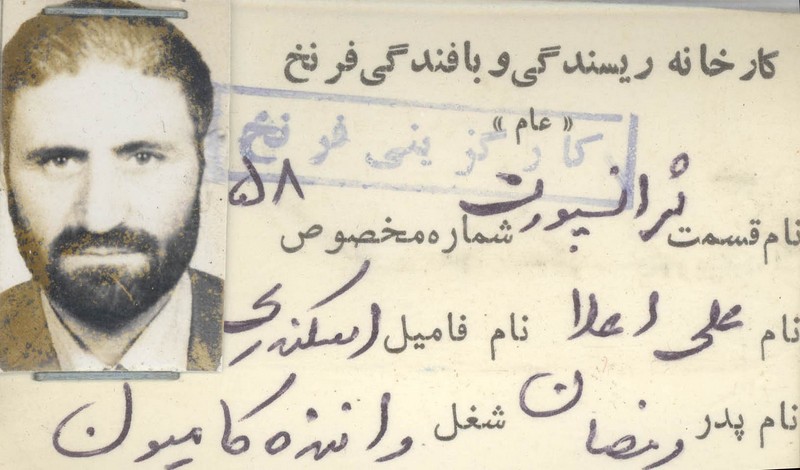 کارخانه ریسندگی و بافندگی فرنخ
« عام »
کارگزینی فرنخ
نام قسمت ترانسپورت شماره مخصوص ۵۸
نام علی اعلا نام فامیل اسکندری
نام پدر رمضان شغل راننده کامیون